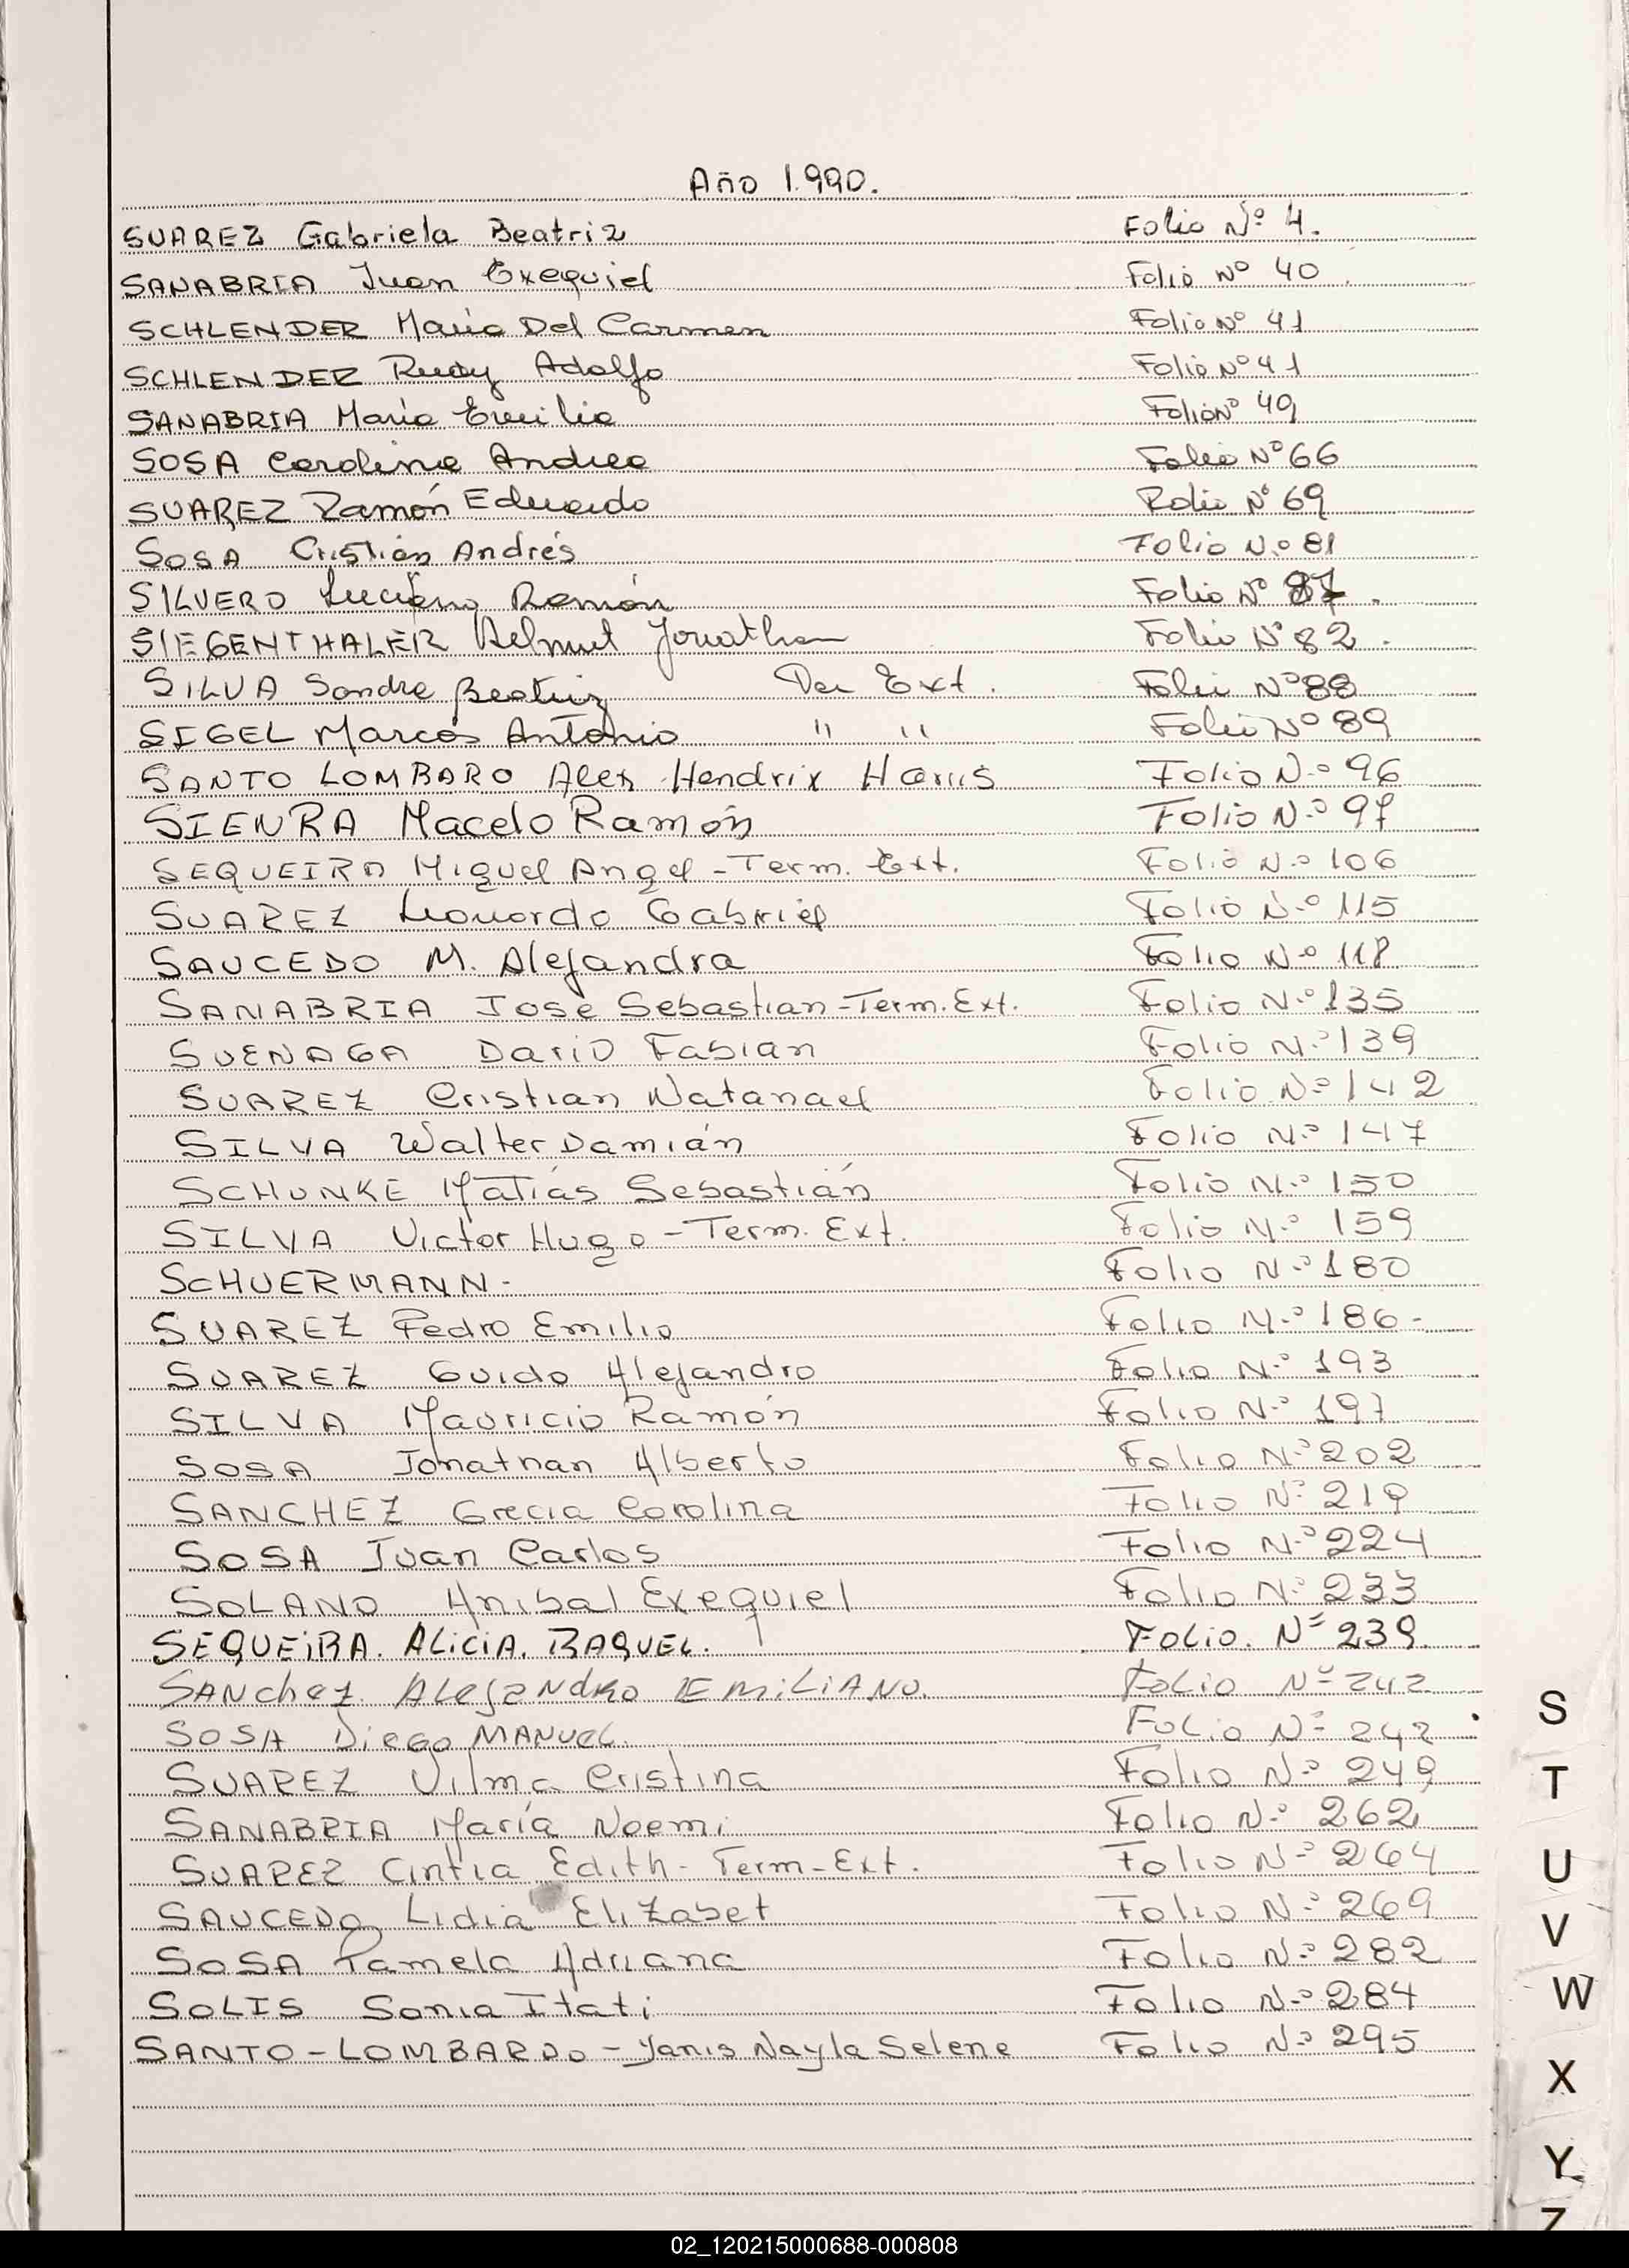 Año 1.990.
SUAREZ Gabriela Beatriz Folio Nº 4.
SANABRIA Juan Exequiel Folio Nº 40
SCHLENDER María Del Carmen Folio Nº 41
SCHLENDER Rudy Adolfo Folio Nº 41
SANABRIA María Emilia Folio Nº 49
SOSA Carolina Andrea Folio Nº 66
SUAREZ Ramón Eduardo Folio Nº 69
SOSA Cristian Andrés Folio N.º 81
SILVERO Luciano Ramón Folio Nº 87.
SIEGENTHALER Helmut Jonathan Folio Nº 82.
SILVA Sandra Beatriz Ter Ext. Folio Nº 88
SIGEL Marcos Antonio " " Folio Nº 89
SANTO LOMBARO Alex Hendrix Harris Folio N.º 96
SIENRA Macelo Ramón Folio N.º 97
SEQUEIRA Miguel Angel - Term. Ext. Folio N.º 106
SUAREZ Leonardo Gabriel Folio N.º 115
SAUCEDO M. Alejandra Folio N.º 118
SANABRIA José Sebastian - Term. Ext. Folio N.º 135
SUENAGA Dario Fabian Folio N.º 139
SUAREZ Cristian Natanael Folio N.º 142
SILVA Walter Damián Folio N.º 147
SCHUNKE Matías Sebastián Folio N.º 150
SILVA Victor Hugo - Term. Ext. Folio N.º 159
SCHUERMANN - Folio N.º 180
SUAREZ Pedro Emilio Folio N.º 186 -
SUAREZ Guido Alejandro Folio N.º 193
SILVA Mauricio Ramón Folio N.º 197
SOSA Jonathan Alberto Folio N.º 202
SANCHEZ Grecia Carolina Folio N.º 219
SOSA Juan Carlos Folio N.º 224
SOLANO Anibal Exequiel Folio N.º 233
SEQUEIRA. ALICIA. RAQUEL. FOLIO. Nº 239.
SANchez ALejANdRO EMiLiANO. FoLio Nº 242
SOSA DiEGO MANUEL. FoLio Nº 242
SUAREZ Vilma Cristina Folio N.º 249
SANABRIA María Noemi Folio N.º 262
SUAREZ Cintia Edith - Term - Ext. Folio N.º 264
SAUCEDO Lidia Elizabet Folio N.º 269
SOSA Pamela Adriana Folio N.º 282
SOLIS Sonia Itati Folio N.º 284
SANTO - LOMBARDO - Yanis Nayla Selene Folio N.º 295
S
T
U
V
W
X
Y
Z
02_120215000688-000808